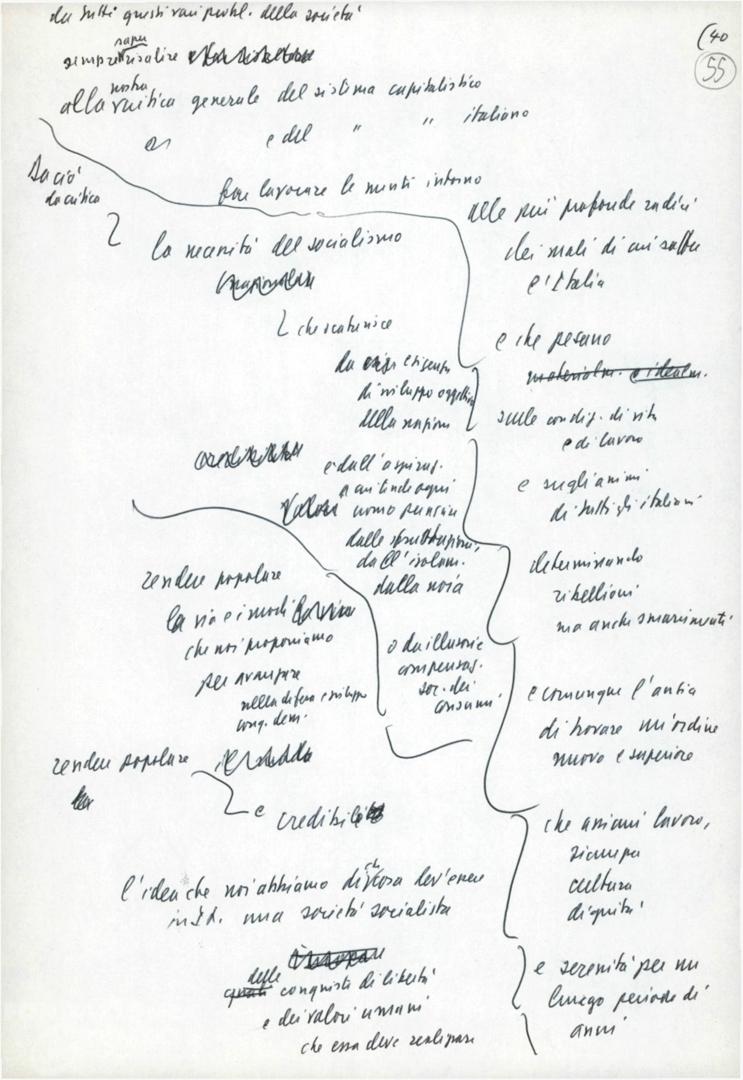 da tutti questi vari probl. della società
(40
55
sempre saper risalire
alla nostra critica generale del sistema capitalistico
e del " " italiano
Da ciò
la critica
far lavorare le menti intorno
alle più profonde radici
dei mali di cui soffre
l'Italia
e che pesano
materialm. e idealm.
sulle condiz. di vita
e di lavoro
e sugli animi
di tutti gli italiani
determinando
ribellioni
ma anche smarrimenti
e comunque l'ansia
di trovare un'ordine
nuovo e superiore
che assicuri lavoro,
sicurezza
cultura
dignità
e serenità per un
lungo periodo di
anni
la necessità del socialismo
che scaturisce
da esigenze
di sviluppo oggettivo
della nazione
e dall'aspiraz.
a cui tende ogni
uomo
dallo sfruttamento,
dall'isolam.
dalla noia
o da illusorie
compensaz.
soc. dei
consumi
rendere popolare
la via e i modi
che noi proponiamo
per avanzare
nella difesa e sviluppo
conq. dem.
rendere popolare
e credibile
l'idea che noi abbiamo di che cosa dev'essere
in It. una società socialista
delle conquiste di libertà
e dei valori umani
che essa deve realizzare